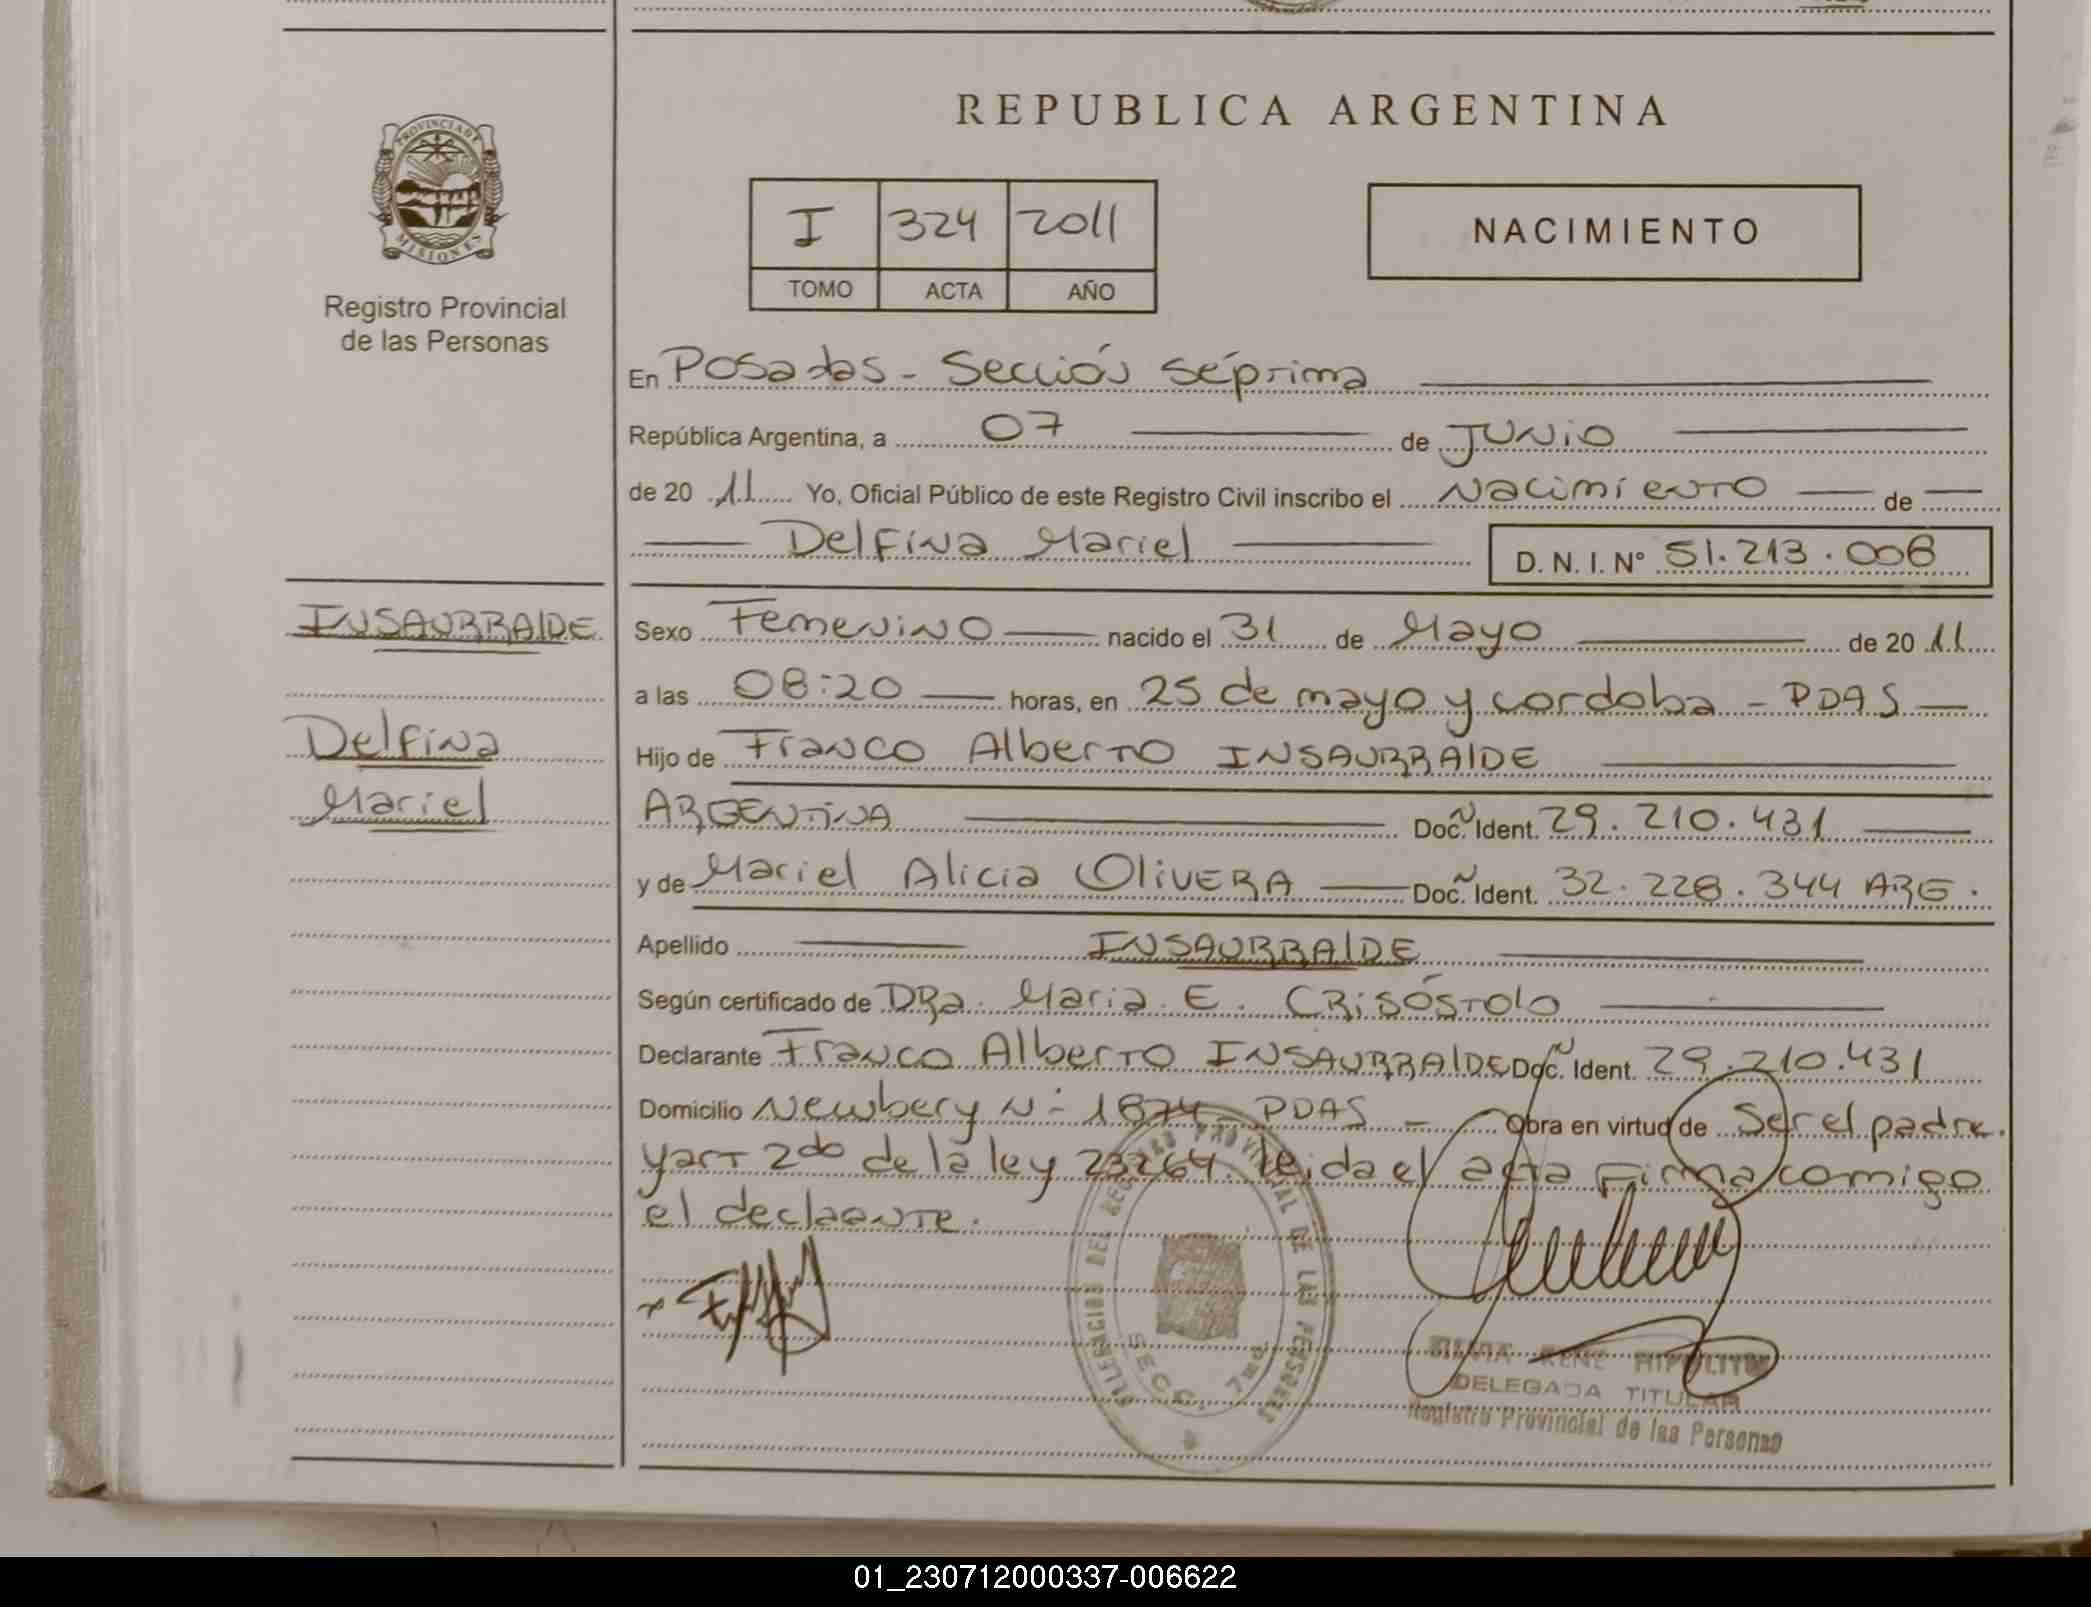 REPUBLICA ARGENTINA
PROVINCIA DE
MISIONES
Registro Provincial
de las Personas
I 324 2011
TOMO ACTA AÑO
NACIMIENTO
En Posadas - Sección séptima
República Argentina, a 07 de JUNIO
de 20 11 Yo, Oficial Público de este Registro Civil inscribo el Nacimiento de
Delfina Mariel D. N. I. Nº 51.213.008
INSAURRALDE
Delfina
Mariel
Sexo Femenino nacido el 31 de Mayo de 20 11
a las 08:20 horas, en 25 de mayo y cordoba - PDAS
Hijo de Franco Alberto INSAURRALDE
ARGENTINA Doc. Ident. 29.210.431
y de Mariel Alicia OliVERA Doc. Ident. 32.228.344 ARG.
Apellido INSAURRALDE
Según certificado de DRa. Maria E. CRiSÓSTOlo
Declarante Franco Alberto INSAURRALDE Doc. Ident. 29.210.431
Domicilio Newbery N- 1874 - PDAS - Obra en virtud de Ser el padre.
y art 2do de la ley 23264. leida el acta Firma comigo
el declaante.
DELEGACION DEL REGISTRO PROVINCIAL DE LAS PERSONAS
SECC. 7ma.
RENE HIPOLITO
DELEGADA TITULAR
Registro Provincial de las Personas
01_230712000337-006622